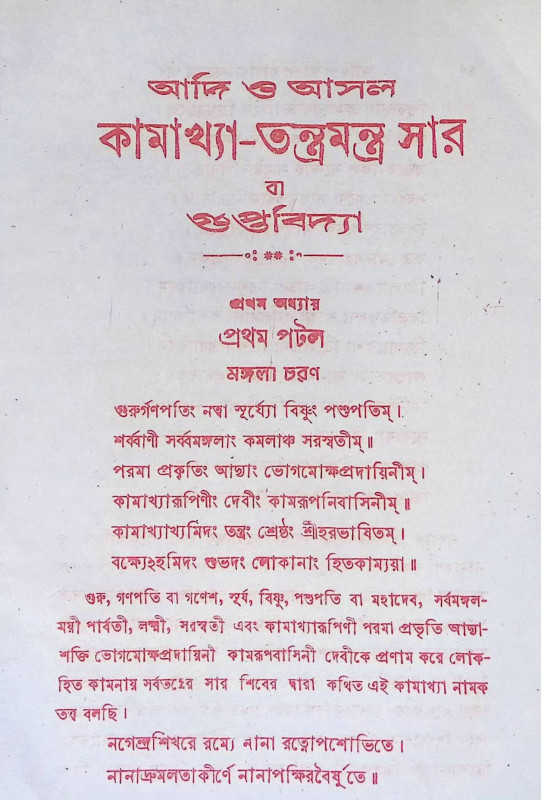 আদি ও আসল
কামাখ্যা-তন্ত্রমন্ত্র সার
বা
গুপ্তবিদ্যা
প্রথম অধ্যায়
প্রথম পটল
মঙ্গলা চরণ
গুরুর্গণপতিং নত্বা সূর্য্যো বিষ্ণুং পশুপতিম্।
শর্ব্বাণী সর্ব্বমঙ্গলাং কমলাঞ্চ সরস্বতীম্॥
পরমা প্রকৃতিং আদ্যাং ভোগমোক্ষপ্রদায়িনীম্।
কামাখ্যারূপিণীং দেবীং কামরূপনিবাসিনীম্॥
কামাখ্যাখ্যমিদং তন্ত্রং শ্রেষ্ঠং শ্রীহরভাষিতম্।
বক্ষ্যেঽহমিদং শুভদং লোকানাং হিতকাম্যয়া॥
গুরু, গণপতি বা গণেশ, সূর্য, বিষ্ণু, পশুপতি বা মহাদেব, সর্বমঙ্গল-
ময়ী পার্বতী, লক্ষ্মী, সরস্বতী এবং কামাখ্যারূপিণী পরমা প্রভৃতি আদ্যা-
শক্তি ভোগমোক্ষপ্রদায়িনী কামরূপবাসিনী দেবীকে প্রণাম করে লোক-
হিত কামনায় সর্বতন্ত্রের সার শিবের দ্বারা কথিত এই কামাখ্যা নামক
তত্ত্ব বলছি।
নগেন্দ্রশিখরে রম্যে নানা রত্নোপশোভিতে।
নানাদ্রুমলতাকীর্ণে নানাপক্ষিরবৈর্যুতে॥